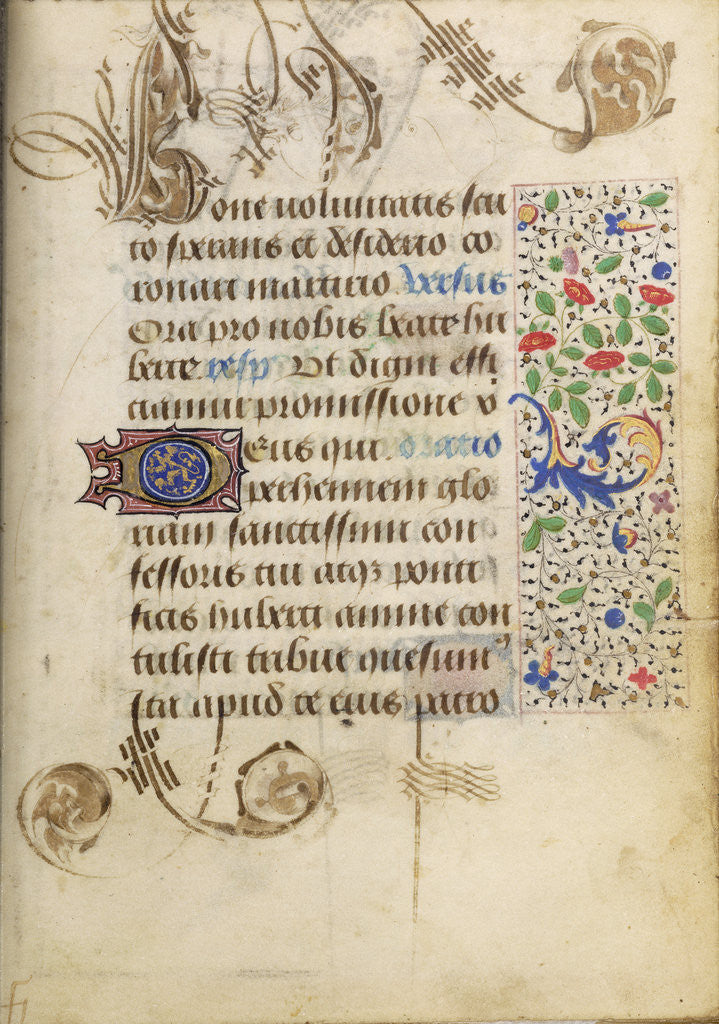 Bone voluntatis scu
to sperans et desiderio co
ronari martirio Versus
Ora pro nobis beate hu
berte resp Ut digni effi
ciamur promissione x̄
Deus qui oratio
perhennem glo
riam sanctissimi con
fessoris tui atq3 ponti
ficis huberti anime con
tulisti tribue quesumꝰ
Ita apud te eius patro